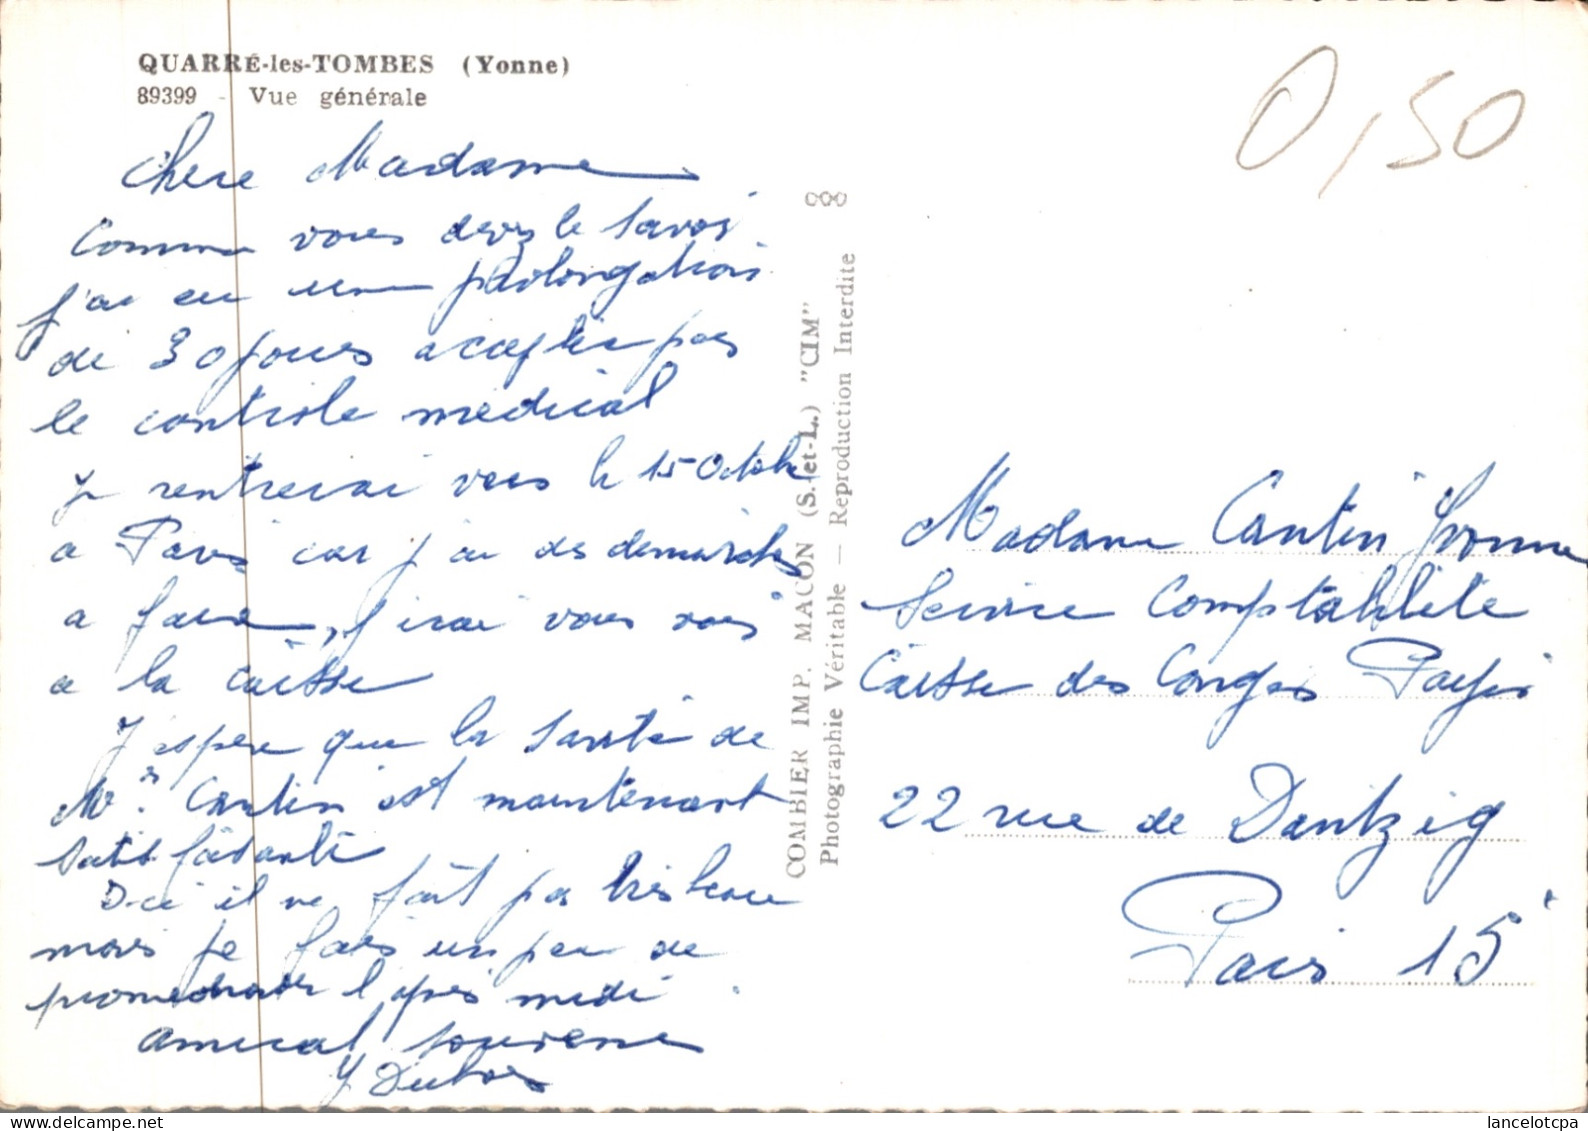 QUARRÉ-les-TOMBES (Yonne)
89399 - Vue générale
0,50
Chere Madame
Comme vous devez le savoir
j'ai eu une prolongation
de 30 jours acceptée par
le controle medical
je rentrerai vers le 15 Octobre
a Paris car j'ai des demarches
a faire, j'irai vous voir
a la caisse
J'espere que la santé de
Mr. Cantin est maintenant
satisfaisante
Ici il ne fait pas très beau
mais je fais un peu de
promenade l'après midi.
Amical souvenir
Y Dubois
COMBIER IMP. MACON (S.-et-L.) "CIM"
Photographie Véritable — Reproduction Interdite
Madame Cantin Yvonne
Service Comptabilité
Caisse des Congés Payés
22 rue de Dantzig
Paris 15e
lancelotcpa